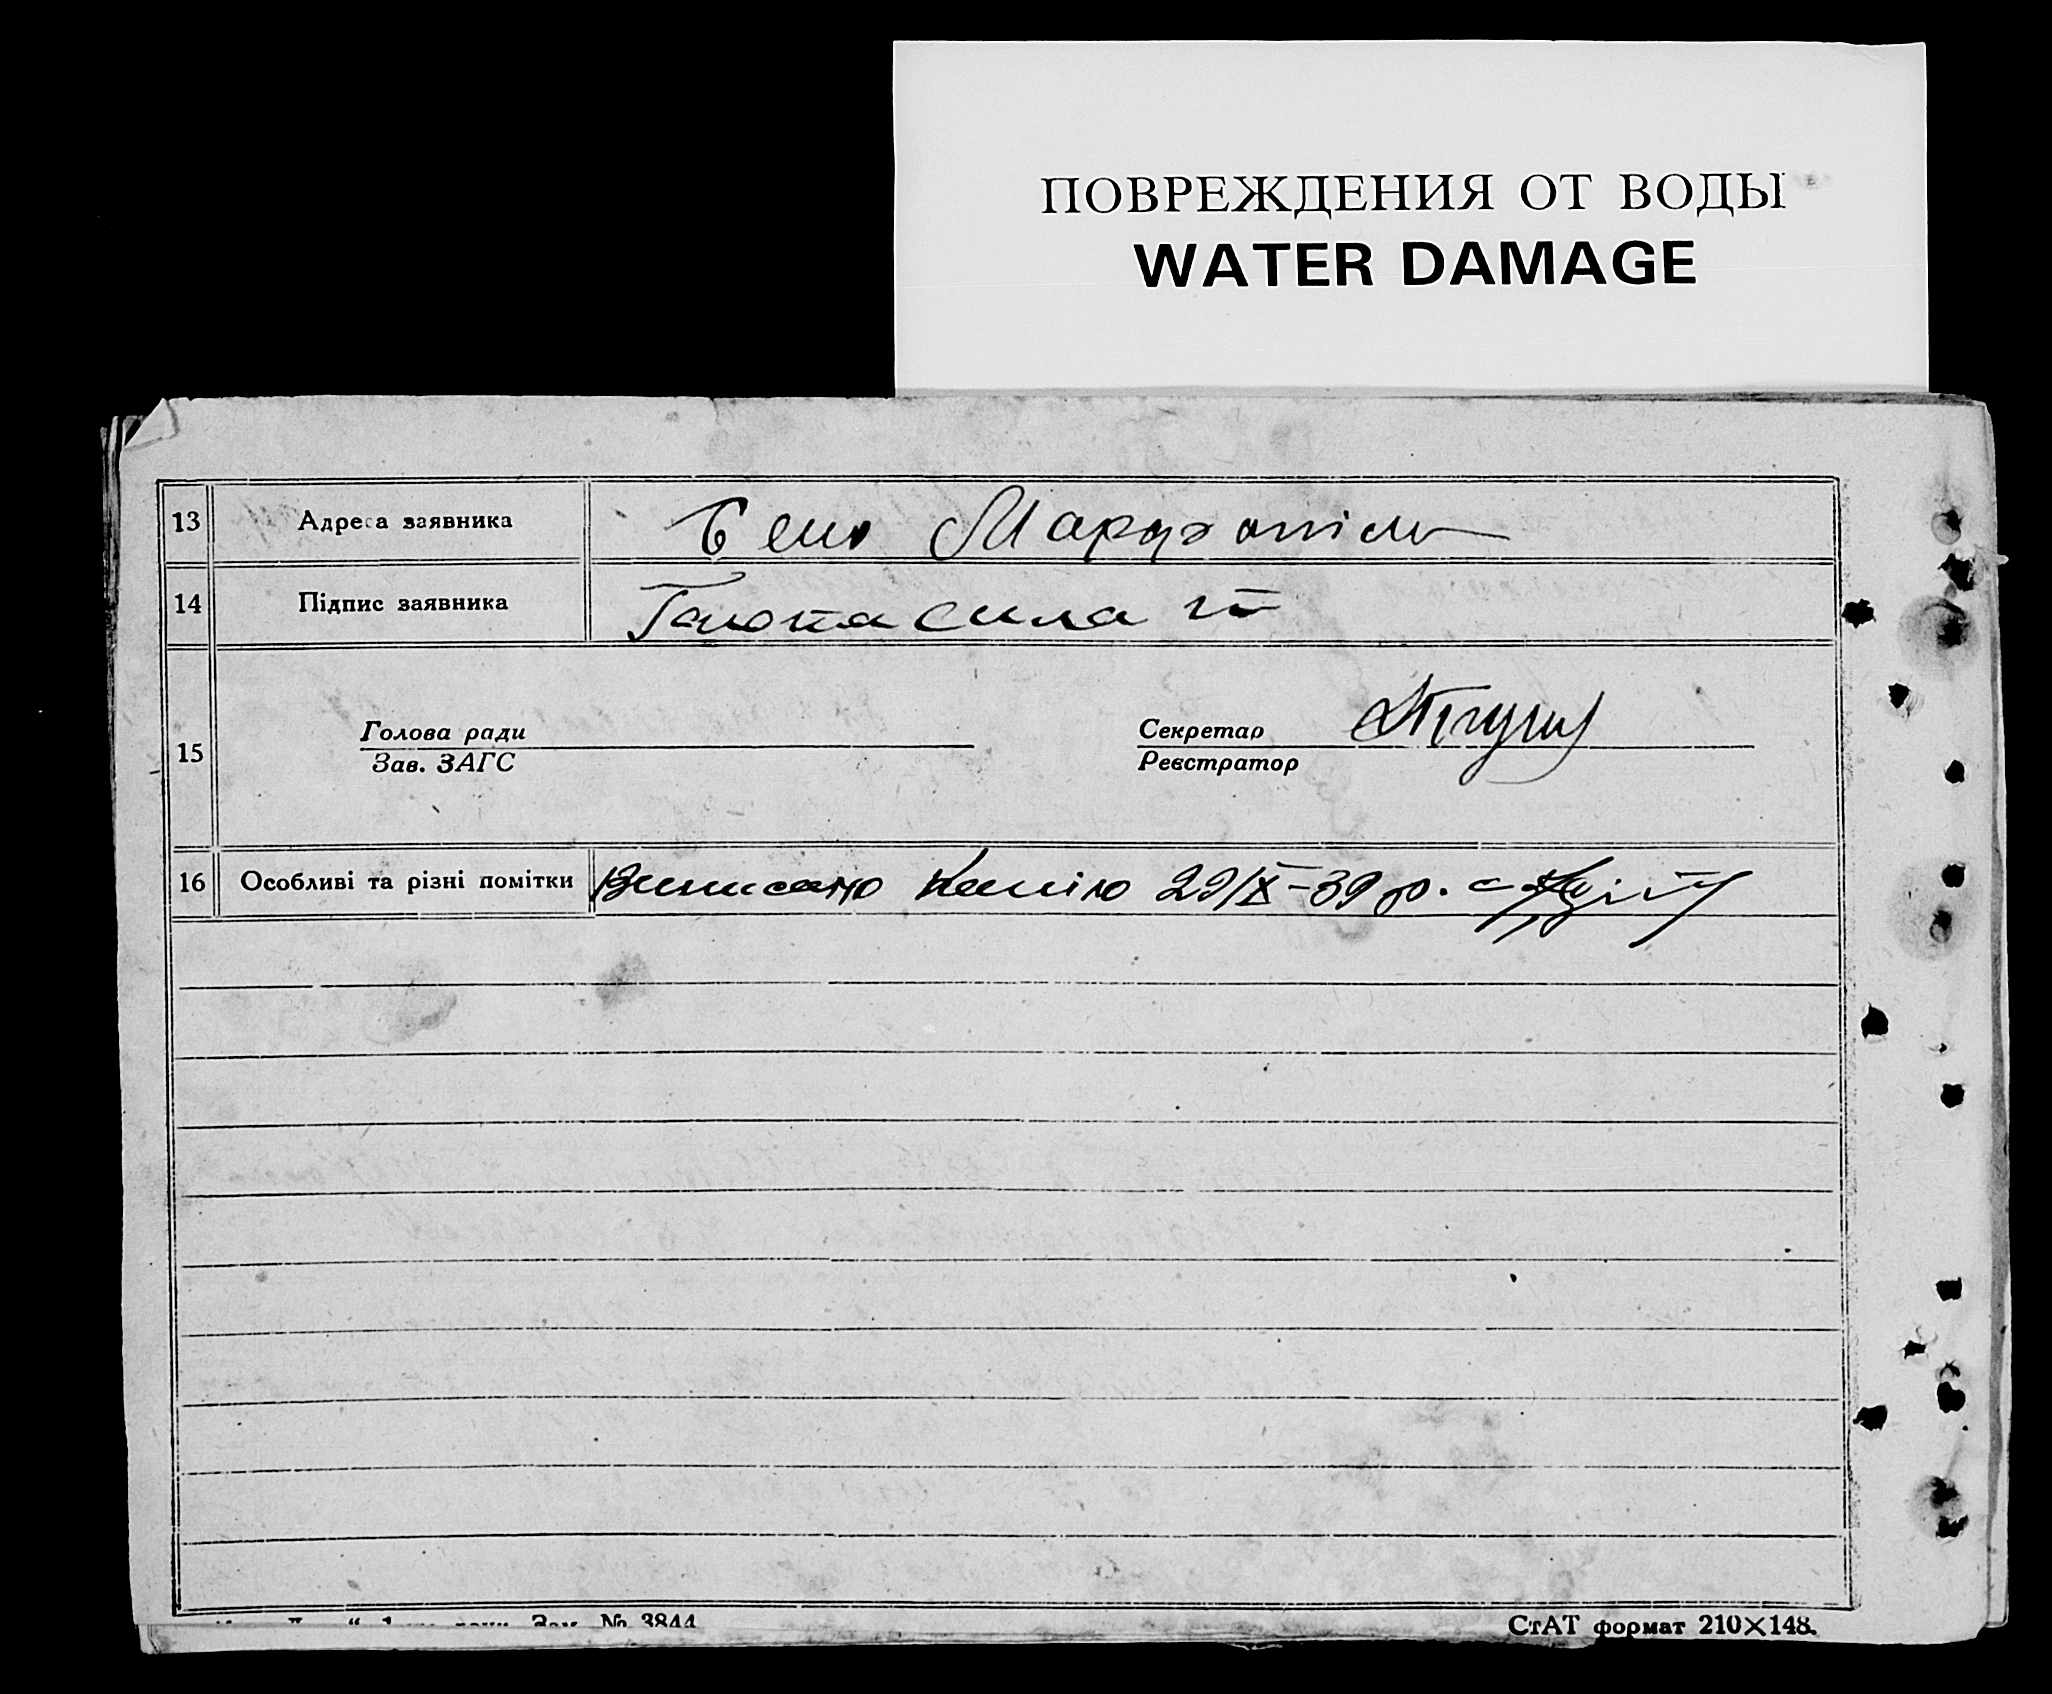 ПОВРЕЖДЕНИЯ ОТ ВОДЫ
WATER DAMAGE
13 Адреса заявника Село Мардаротіль
14 Підпис заявника
15 Голова ради
Зав. ЗАГС
Секретар
Реєстратор
16 Особливі та різні помітки Виписано Копію 29/IX-39 р.
Зам. № 3844
СтАТ формат 210×148.